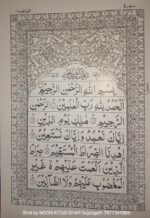 بِسْمِ اللّٰهِ الرَّحْمٰنِ الرَّحِيْمِ
اَلْحَمْدُ لِلّٰهِ رَبِّ الْعٰلَمِيْنَ الرَّحْمٰنِ
الرَّحِيْمِ مٰلِكِ يَوْمِ الدِّيْنِ
اِيَّاكَ نَعْبُدُ وَاِيَّاكَ نَسْتَعِيْنُ
اِهْدِنَا الصِّرَاطَ الْمُسْتَقِيْمَ صِرَاطَ
الَّذِيْنَ اَنْعَمْتَ عَلَيْهِمْ غَيْرِ
الْمَغْضُوْبِ عَلَيْهِمْ وَلَا الضَّآلِّيْنَ